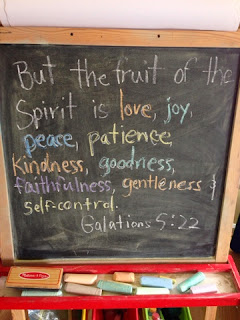 But the fruit of the
Spirit is love, joy,
peace, patience,
kindness, goodness,
faithfulness, gentleness &
self-control.
Galations 5:22